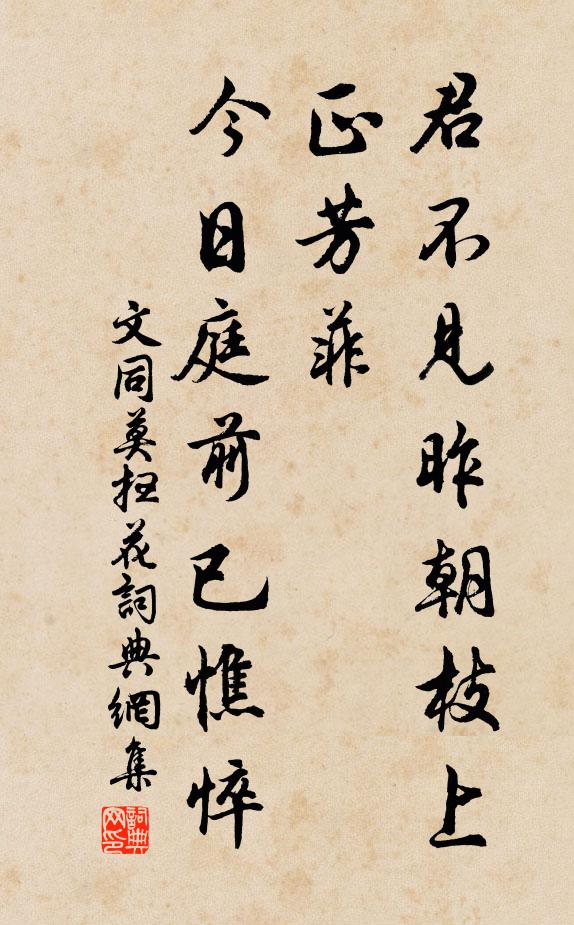 君不見昨朝枝上
正芳菲
今日庭前已憔悴
文同莫扫花詞典網集
詞典网印